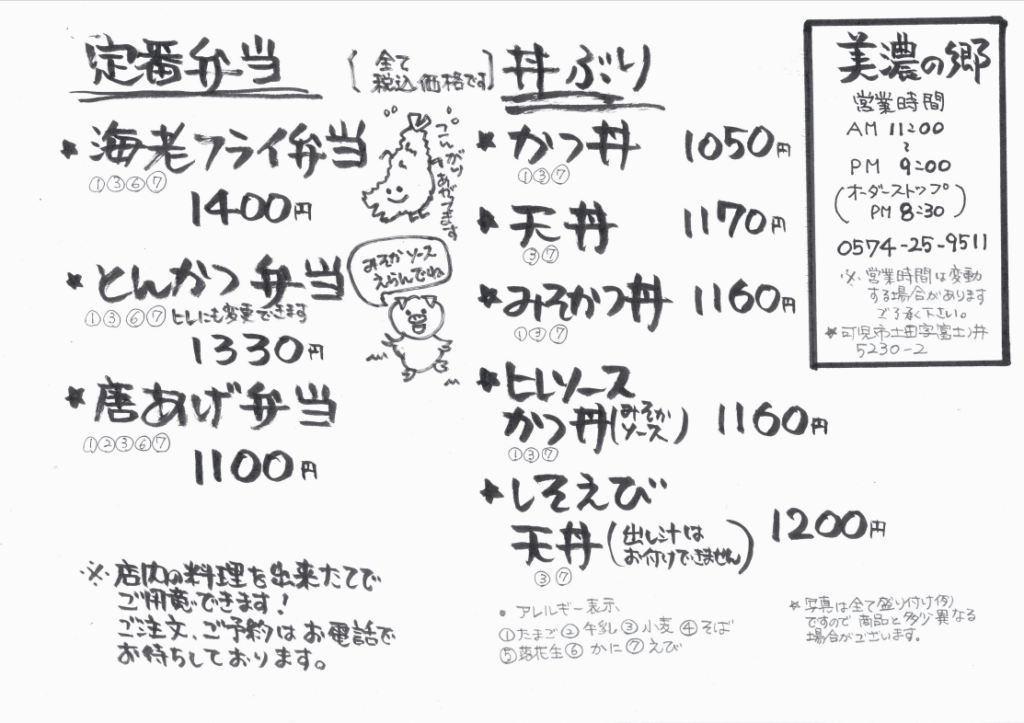 定番弁当
(全て
税込価格です)
★海老フライ弁当
①③⑥⑦
1400円
こんがり
あがってます
★とんかつ弁当
①③⑥⑦ヒレにも変更できます
1330円
みそかソース
えらんでね
★唐あげ弁当
①②③⑥⑦
1100円
※店内の料理を出来たてで
ご用意できます!
ご注文、ご予約はお電話で
お待ちしております。
丼ぶり
★かつ丼 1050円
①③⑦
★天丼 1170円
③⑦
★みそかつ丼 1160円
①③⑦
★ヒレソース
かつ丼(みそか
ソース) 1160円
①③⑦
★しそえび
天丼(出し汁は
お付けできません) 1200円
③⑦
● アレルギー表示、
①たまご②牛乳③小麦④そば
⑤落花生⑥かに⑦えび
★写真は全て盛り付け例
ですので商品と多少異なる
場合がございます。
美濃の郷
営業時間
AM 11:00
〜
PM 9:00
(オーダーストップ
PM 8:30)
0574-25-9511
※営業時間は変動
する場合があります
ご了承下さい。
★可児市土田字富士ノ井
5230-2